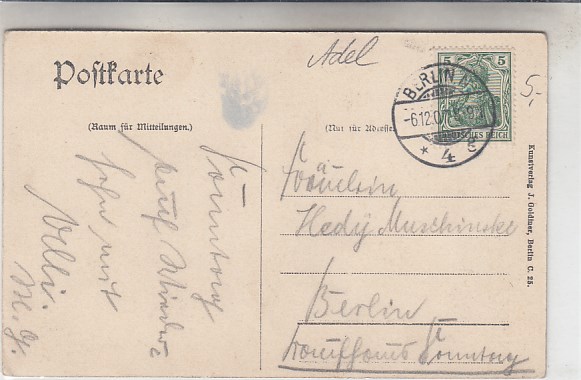 Adel
5,-
Postkarte
5 5
DEUTSCHES REICH
BERLIN
-6.12.07
* 4
(Raum für Mitteilungen.)
(Nur für Adresse.)
Sonntag
auf Wieder-
sehn mit
Willi.
M. G.
Fräulein
Hedy Muschinske
Berlin
Sonntag
Kunstverlag J. Goldiner, Berlin C. 25.